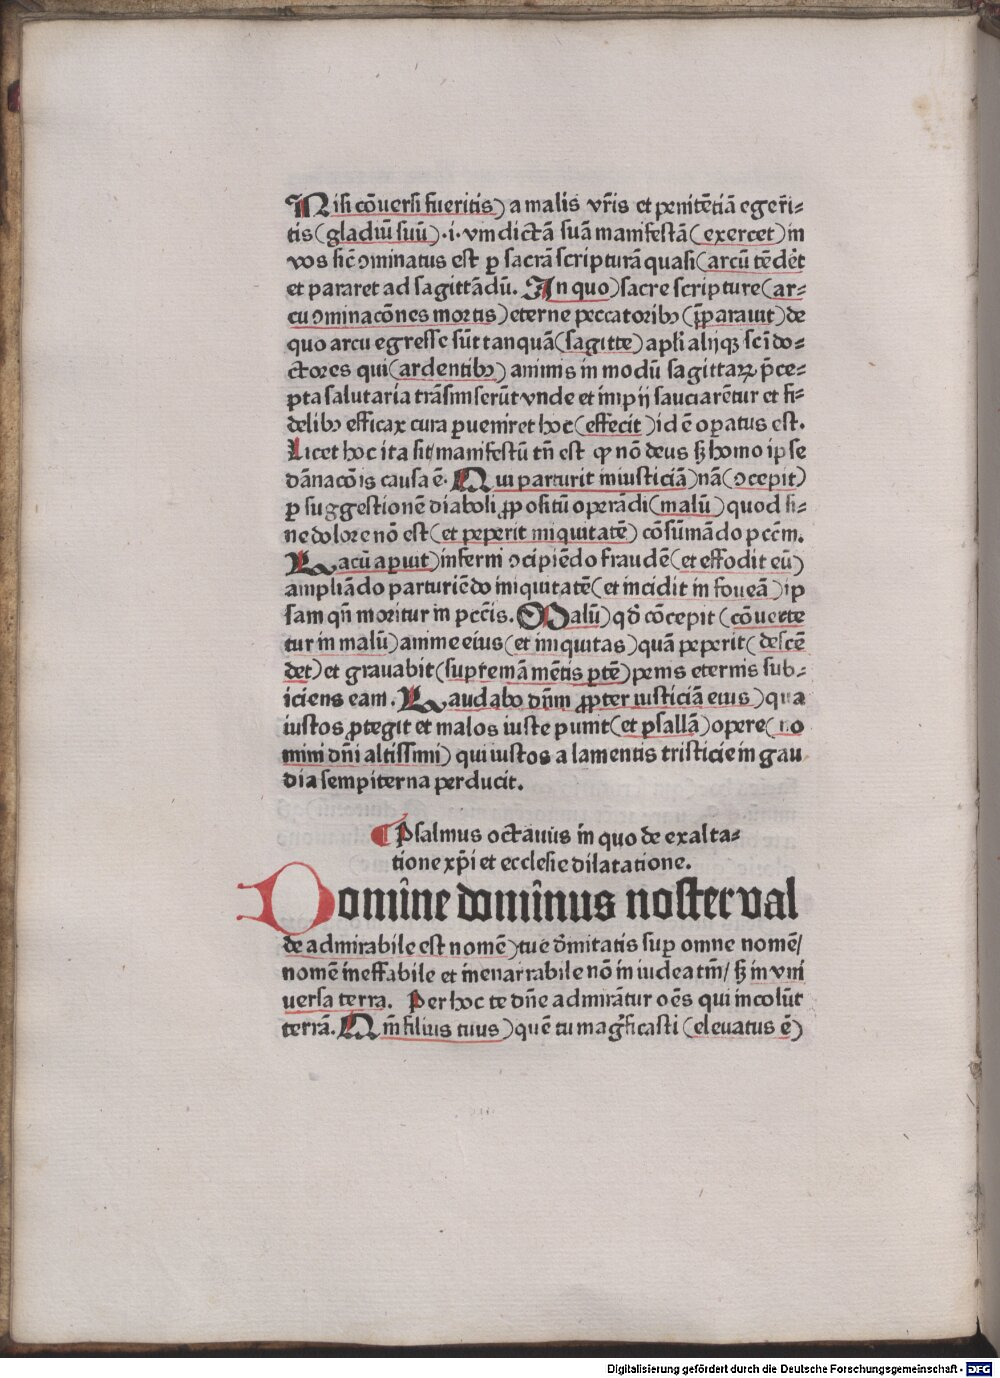 Nisi cōversi fueritis) a malis vr̄is et penitētiā egeri-
tis (gladiū suū) .i. vindictā suā manifestā (exercet) in
vos sic̄ ꝯminatus est ꝑ sacrā scripturā quasi (arcū tēdēt
et pararet ad sagittādū. In quo) sacre scripture (ar-
cu ꝯminacōnes mortis) eterne peccatoribꝰ (p̄parauit) de
quo arcu egresse sūt tanquā (sagitte) apl̄i alijqꝫ sc̄i do-
ctores qui (ardentibꝰ) animis in modū sagittaꝝ p̄ce-
pta salutaria trāsmiserūt vnde et impij sauciarētur et fi-
delibꝰ efficax cura ꝑueniret hoc (effecit) id ē oꝑatus est.
Licet hoc ita sit/ manifestū tn̄ est ꝙ nō deus sꝫ homo ipse
dānacōis causa ē. Qui parturit iniusticiā) nā (ꝯcepit)
ꝑ suggestionē diaboli ꝓpositū operādi (malū) quod si-
ne dolore nō est (et peperit iniquitatē) cōsūmādo pccm̄.
Lacū aꝑuit) inferni ꝯcipiēdo fraudē (et effodit eū)
ampliādo parturiēdo iniquitatē (et incidit in foueā) ip
sam qn̄ moritur in pcc̄is. Malū) qd̄ cōcepit (cōuerte
tur in malū) anime eius (et iniquitas) quā peperit (descē
det) et grauabit (supremā mētis ꝑtē) penis eternis sub-
iciens eam. Laudabo dn̄m ꝓpter iusticiā eius) quia
iustos ꝓtegit et malos iuste punit (et psallā) opere (no
mini dn̄i altissimi) qui iustos a lamentis tristicie in gau
dia sempiterna perducit.
Psalmus octauus in quo de exalta-
tione xp̄i et ecclesie dilatatione.
Domine dominus noster val
de admirabile est nomē) tue d̄initatis suꝑ omne nomē/
nomē ineffabile et inenarrabile nō in iudea tm̄/ sꝫ in vni
uersa terra. Per hoc te dn̄e admirātur oēs qui incolūt
terrā. Qm̄ filius tuus) quē tu maḡficasti (eleuatus ē)
Digitalisierung gefördert durch die Deutsche Forschungsgemeinschaft - DFG